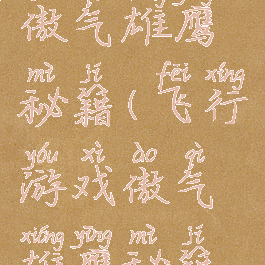 傲气雄鹰
mì jí fēi xíng
秘籍(飞行
yóu xì ào qì
游戏傲气
xióng yīng mì jí
雄鹰秘籍